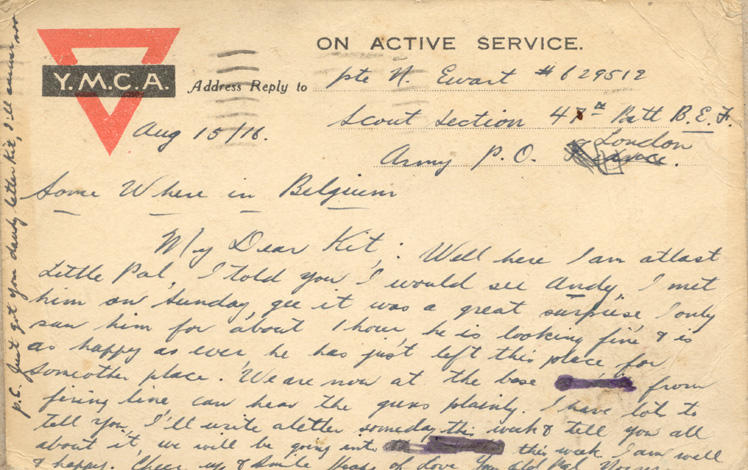 ON ACTIVE SERVICE.
Y.M.C.A.
Address Reply to Pte N. Ewart # 629512
Aug 15/16.
Scout Section 47th Batt B.E.F.
Army P.O. London
Some Where in Belgium
My Dear Kit; Well here I am atlast
Little Pal, I told you I would see Andy, I met
him on Sunday, gee it was a great surprise I only
saw him for about 1 hour he is looking fine & is
as happy as ever he has just left this place for
someother place. We are now at the base from
firing line can hear the guns plainly. I have lot to
tell you, I'll write aletter someday this week & tell you all
about it, we will be going into this week, I am well
& happy. Cheer up & smile Heaps of love Your old Pal
P.S. Just got your dandy letter Kit, I'll answer